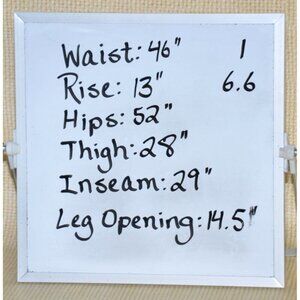 Waist: 46" 1
Rise: 13" 6.6
Hips: 52"
Thigh: 28"
Inseam: 29"
Leg Opening: 14.5"